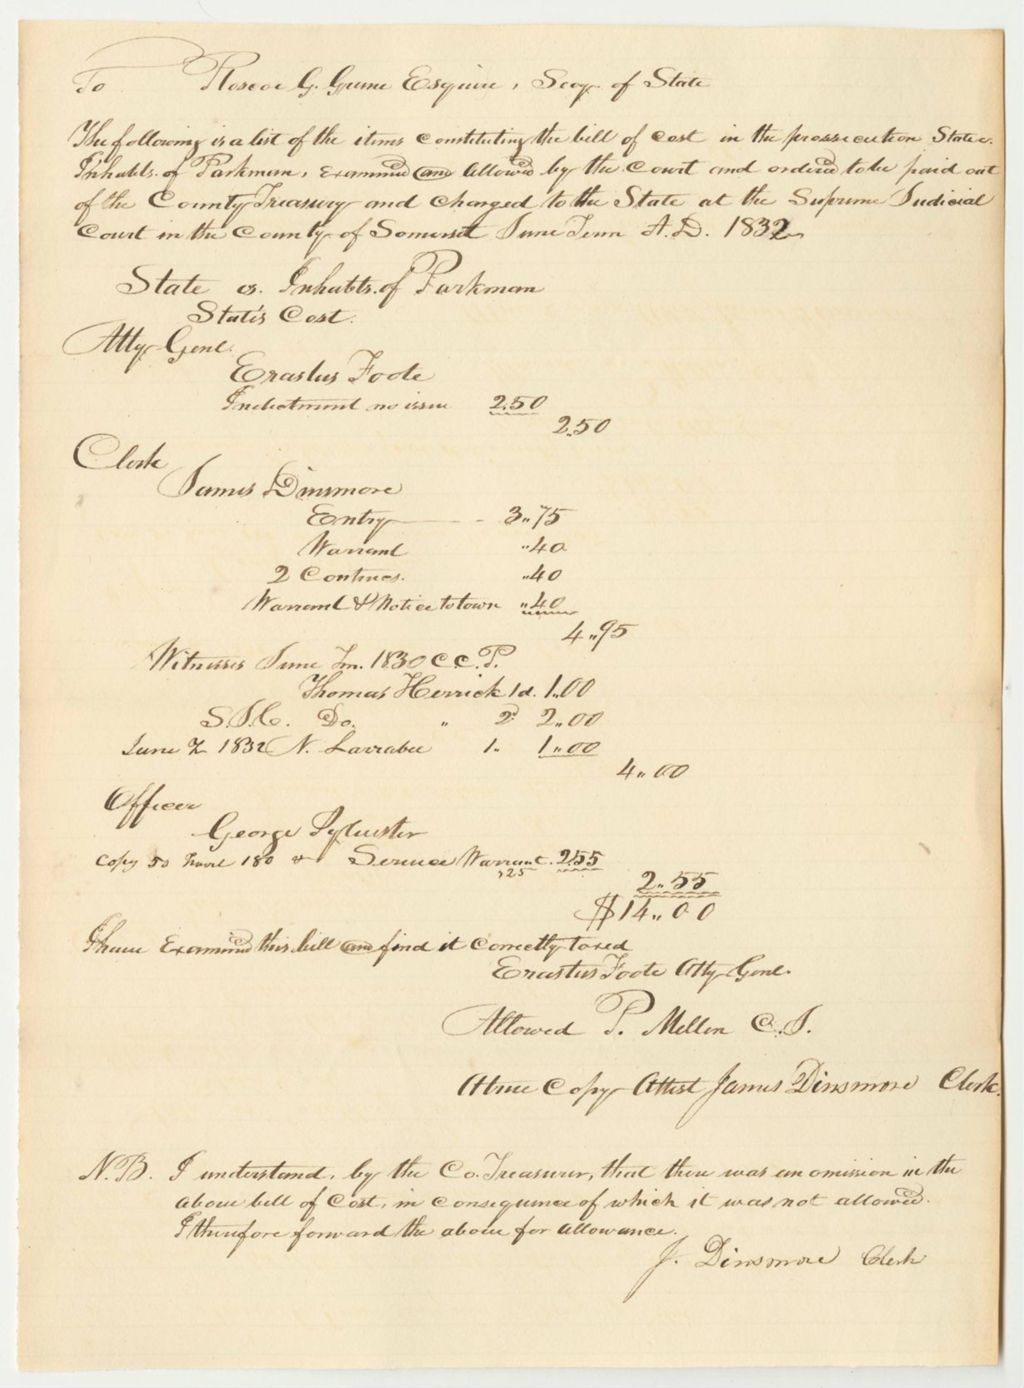 To Roscoe G. Greene Esquire, Secy. of State
The following is a list of the items constituting the bill of cost in the prossecution State v.
Inhabts. of Parkman, Examined and Allowed by the Court and ordered to be paid out
of the County Treasury and charged to the State at the Supreme Judicial
Court in the County of Somerset June Term A.D. 1832
State vs. Inhabts. of Parkman
State's Cost.
Atty Genl.
Erastus Foote
Indictment no issue 2.50
2.50
Clerk
James Dinsmore
Entry - 3..75
Warrant ..40
2 Continces. ..40
Warrant & Notice to town ..40
4..95
Witnesses June Tm. 1830 C.C.P.
Thomas Herrick 1d. 1.00
S.J.C. Do. " 2d 2..00
June T. 1832 N. Larrabee 1.. 1..00
4..00
Officer
George Sylvester
Copy 50 Travel 180 & Service Warrant. 2.55
,25
2..55
$14..00
I have Examined this bill and find it correctly taxed
Erastus Foote Atty Genl.
Allowed P. Mellen C.J.
A true Copy Attest James Dinsmore Clerk.
N.B. I understand, by the Co. Treasurer, that there was an omission in the
above bill of Cost, in consequence of which it was not allowed.
I therefore forward the above for allowance.
J. Dinsmore Clerk